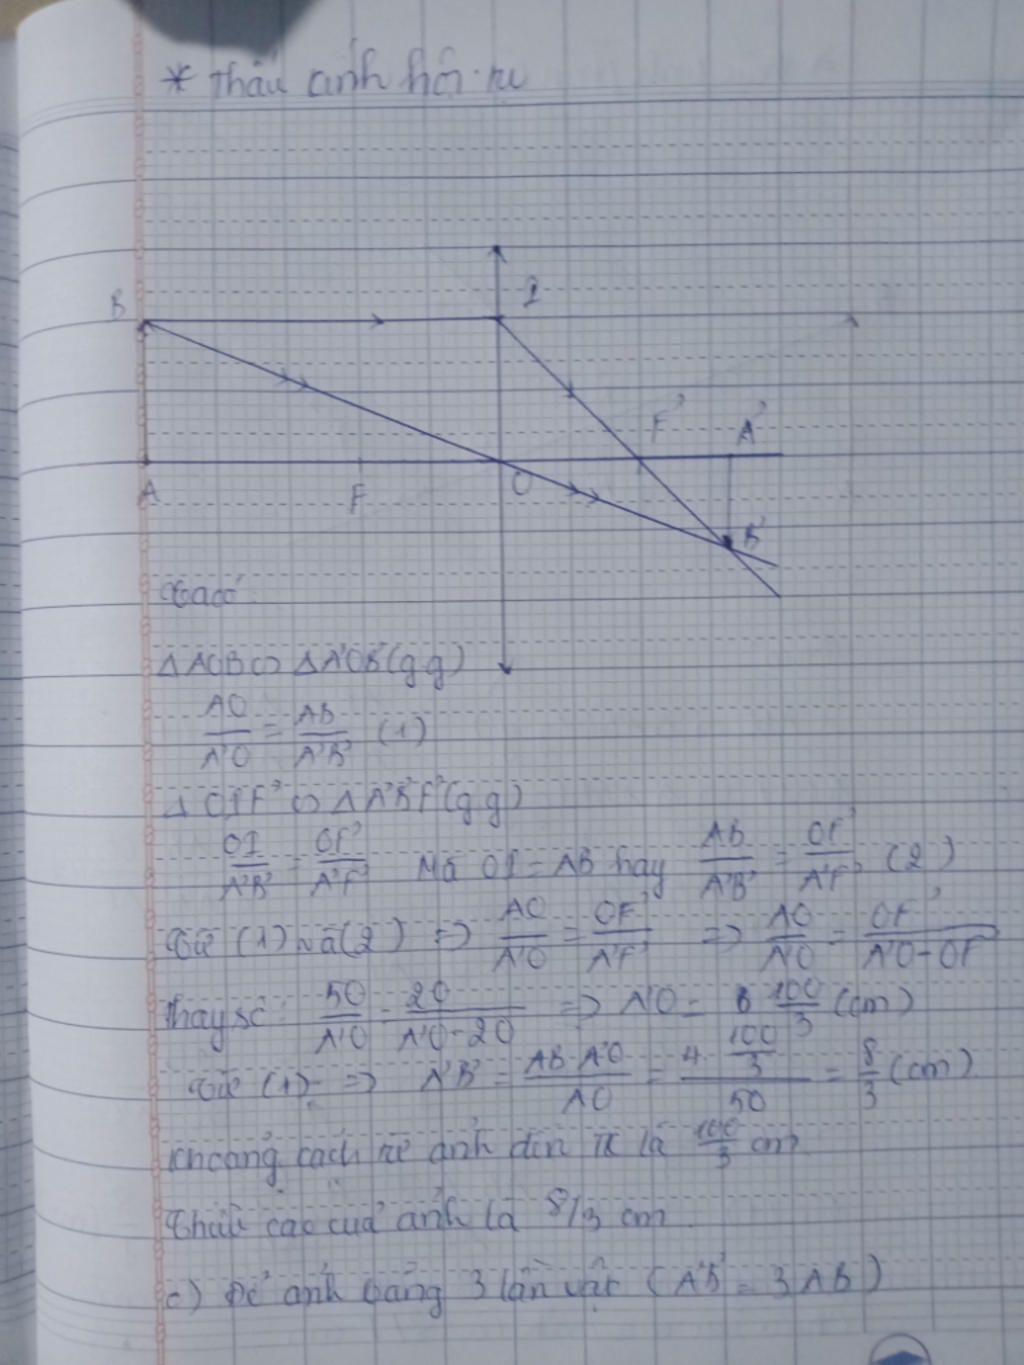 * Thấu kính hội tụ
B
I
F'
A'
A
F
O
B'
Ta có
Δ AOB ∽ Δ A'OB' (g.g)
AO/A'O = AB/A'B' (1)
Δ OIF' ∽ Δ A'B'F' (g.g)
OI/A'B' = OF'/A'F' Mà OI = AB hay AB/A'B' = OF'/A'F' (2)
Từ (1) và (2) => AO/A'O = OF'/A'F' => AO/A'O = OF'/A'O-OF'
Thay số: 50/A'O = 20/A'O-20 => A'O = 100/3 (cm)
Từ (1) => A'B' = AB.A'O/AO = 4.100/3/50 = 8/3 (cm)
Khoảng cách từ ảnh đến TK là 100/3 cm
Chiều cao của ảnh là 8/3 cm
c) Để ảnh bằng 3 lần vật (A'B' = 3AB)